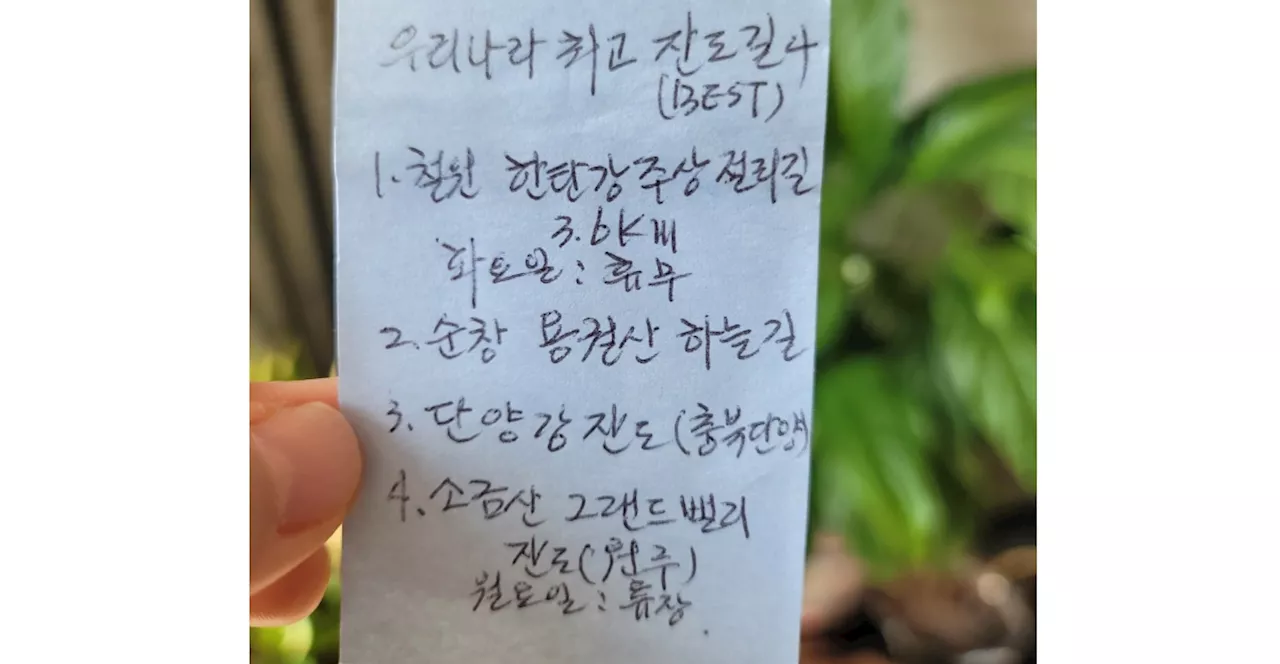 우리나라 최고 잔도길 4
(BEST)
1. 철원 한탄강 주상절리길
3.6Km
화요일 : 휴무
2. 순창 용궐산 하늘길
3. 단양강 잔도 (충북단양)
4. 소금산 그랜드밸리
잔도 (원주)
월요일 : 휴장.